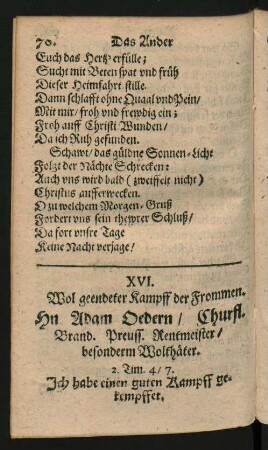 70. Das Ander
Euch das Hertz erfülle;
Sucht mit Beten spat vnd früh
Dieser Heimfahrt stille.
Dann schlafft ohne Quaal vnd Pein/
Mit mir/ froh vnd frewdig ein;
Froh auff Christi Wunden/
Da ich Ruh gefunden.
Schawt/ das güldne Sonnen-Licht
Folgt der Nächte Schrecken:
Auch vns wird bald (zweiffelt nicht)
Christus aufferwecken.
O zu welchem Morgen-Gruß
Fordert vns sein thewrer Schluß/
Da fort vnsre Tage
Keine Nacht verjage/
XVI.
Wol geendeter Kampff der Frommen.
Hn Adam Oedern/ Churfl.
Brand. Preuss. Rentmeister/
besonderm Wolthäter.
2. Tim. 4/ 7.
Ich habe einen guten Kampff ge-
kempffet.